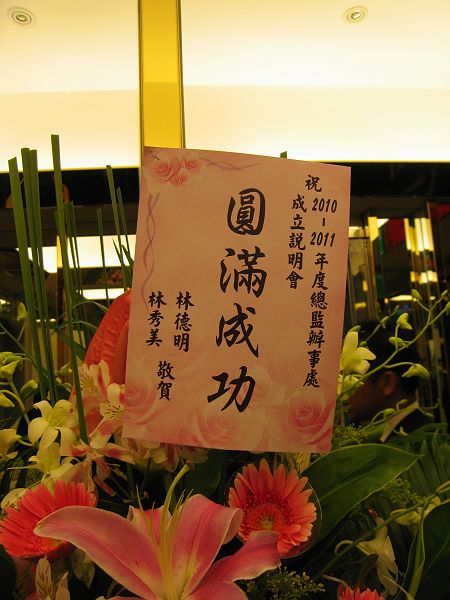 祝 2010-2011年度總監辦事處
成立說明會
圓滿成功
林德明
林秀美 敬賀